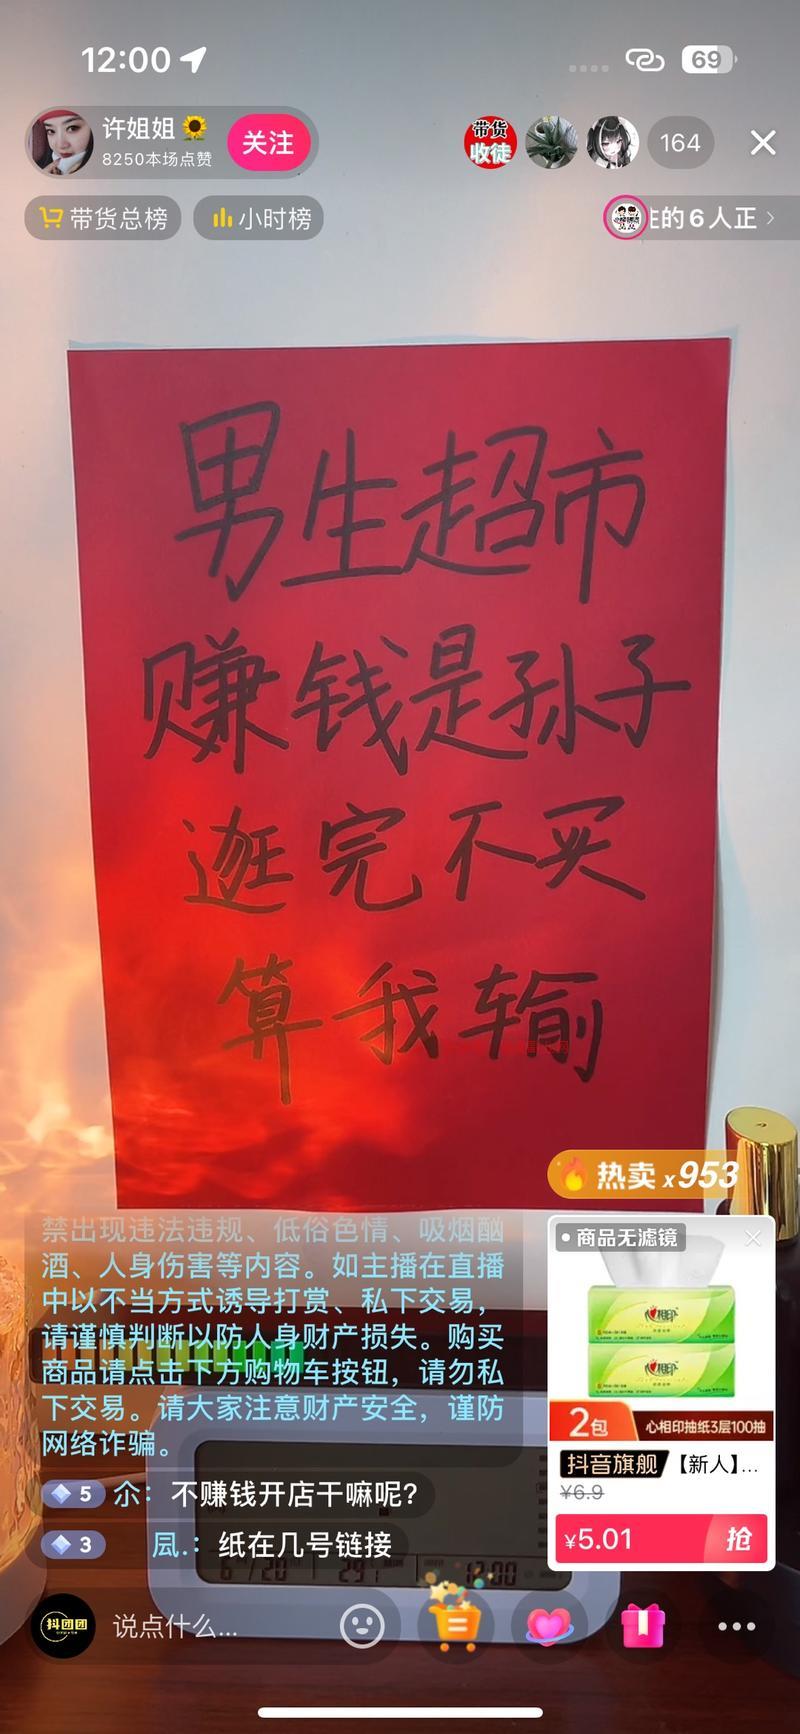 12:00
69
许姐姐🌻
8250本场点赞
关注
带货
收徒
164
带货总榜
小时榜
的6人正
男生超市
赚钱是孙子
逛完不买
算我输
热卖 x953
禁出现违法违规、低俗色情、吸烟酗
酒、人身伤害等内容。如主播在直播
中以不当方式诱导打赏、私下交易，
请谨慎判断以防人身财产损失。购买
商品请点击下方购物车按钮，请勿私
下交易。请大家注意财产安全，谨防
网络诈骗。
商品无滤镜
心相印
心相印
2包
心相印抽纸3层100抽
抖音旗舰 【新人】...
¥6.9
¥5.01
抢
5 尒：不赚钱开店干嘛呢？
3 凮.：纸在几号链接
12:00
抖团团
说点什么...